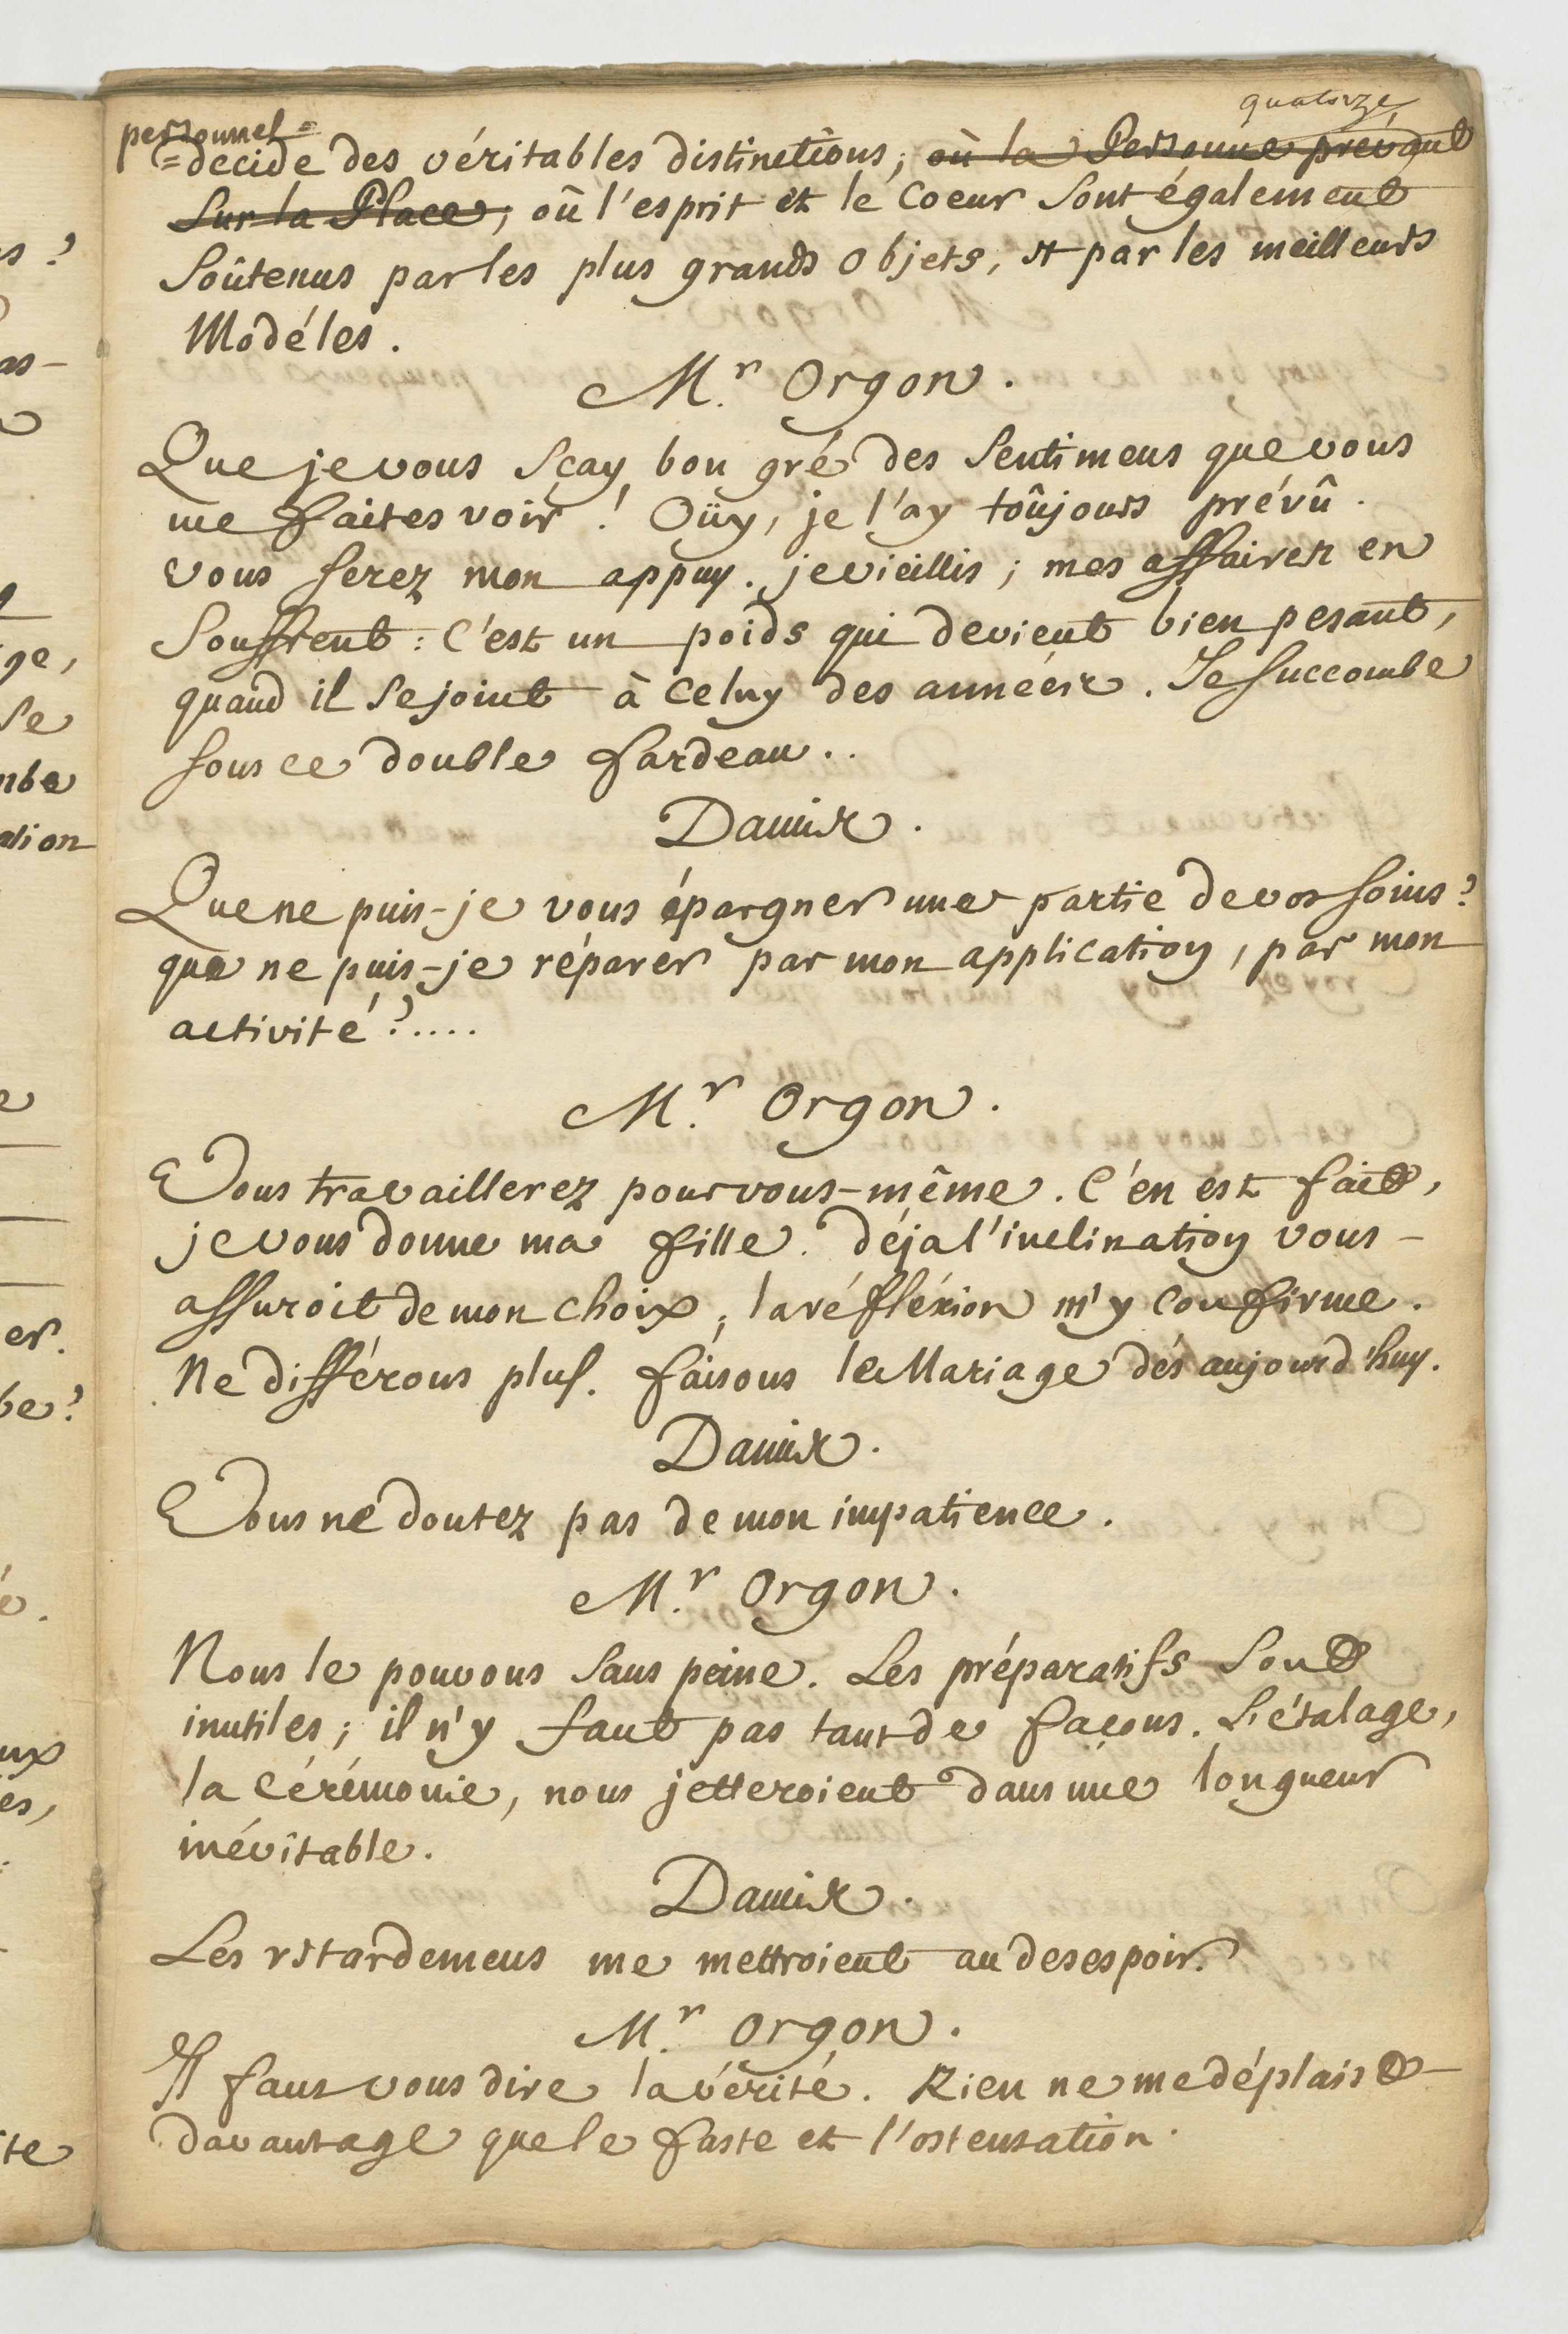 quatorze
personnel =
= decide des véritables distinctions; où la Personne prévaut
sur la Place; où l'esprit et le Coeur sont également
soûtenus par les plus grands objets, et par les meilleurs
Modéles.
Mr. Orgon.
Que je vous sçay bon gré des sentimens que vous
me faites voir! Oüy, je l'ay toûjours prévû.
vous serez mon appuy. je vieillis; mes affaires en
souffrent: C'est un poids qui devient bien pesant,
quand il se joint à celuy des années. Je succombe
sous ce double fardeau..
Damis.
Que ne puis-je vous épargner une partie de vos soins?
que ne puis-je réparer par mon application, par mon
activité?....
Mr. Orgon.
Vous travaillerez pour vous-même. C'en est fait,
je vous donne ma fille. déja l'inclination vous
assuroit de mon choix; la réfléxion m'y confirme.
Ne différons plus. faisons le Mariage dés aujourd'huy.
Damis.
Vous ne doutez pas de mon impatience.
Mr. Orgon.
Nous le pouvons sans peine. Les préparatifs sont
inutiles; il n'y faut pas tant de façons. L'étalage,
la Cérémonie, nous jetteroient dans une longueur
inévitable.
Damis.
Les retardemens me mettroient au desespoir.
Mr. Orgon.
Il faut vous dire la vérité. Rien ne me déplaist
davantage que le faste et l'ostentation.